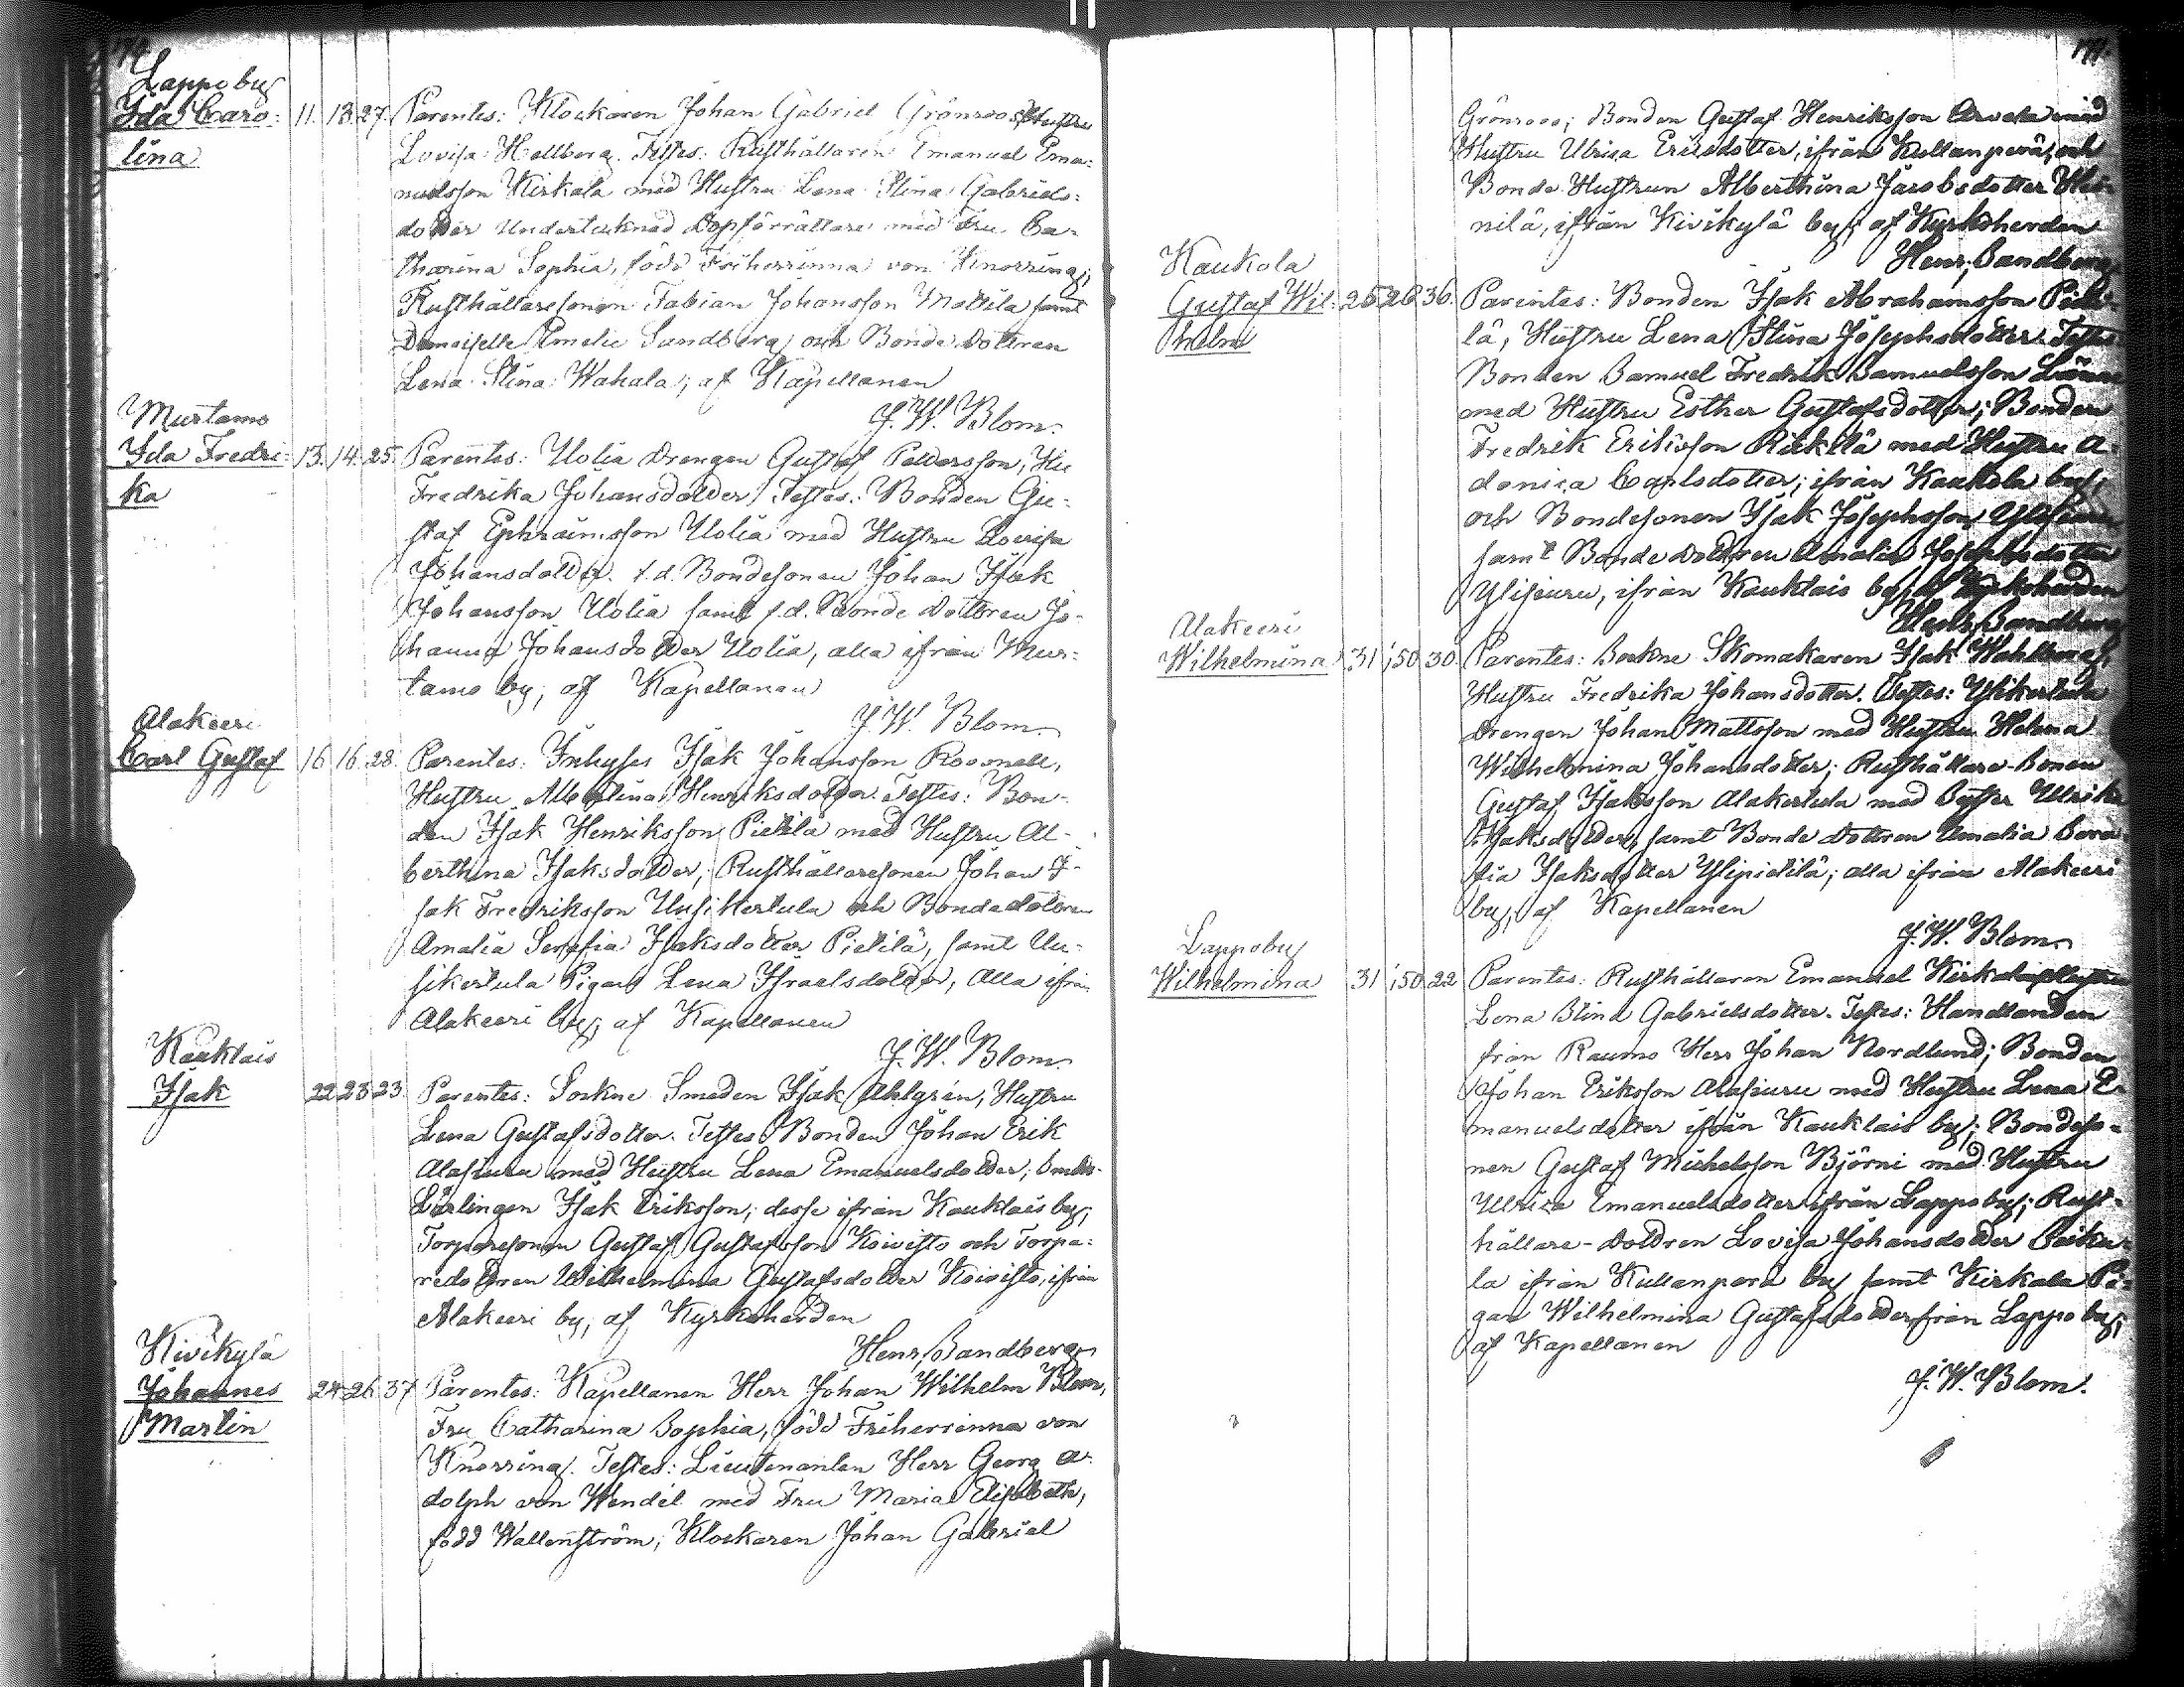 Lappo by
Ida Caro- 11. 13. 27. Parentes: Klockaren Johan Gabriel Grönroos, Hustru
lina Lovisa Hellberg. Testes: Rusthållaren Emanuel Ema-
nuelsson Kirkala med Hustru Lena Stina Gabriels-
dotter Undertecknad Dopförrättare med Fru Ca-
tharina Sophia, född Friherrinna von Knorring;
Rusthållaresonen Fabian Johansson Mattila samt
Demoiselle Emelie Sandberg och Bonde dottren
Lena Stina Wahala; af Kapellanen
J. W. Blom.
Murtamo
Ida Fredri- 13. 14. 25. Parentes: Uolia Drengen Gustaf Pettersson, Hu
ka Fredrika Johansdotter. Testes: Bonden Gu-
staf Ephraimsson Uolia med Hustru Lovisa
Johansdotter. f.d. Bondesonen Johan Isak
Johansson Uolia samt f.d. Bonde dottren Jo-
hanna Johansdotter Uolia, alla ifrån Mur-
tamo by; af Kapellanen
J. W. Blom.
Alakeeri
Carl Gustaf 16 16. 28. Parentes: Inhyses Isak Johansson Roosnell,
Hustru Albertina Henriksdotter. Testes: Bon-
den Isak Henriksson Pietilä med Hustru Al-
berthina Isaksdotter, Rusthållaresonen Johan I-
sak Fredriksson Uusikertula och Bondedottren
Amalia Serafia Isaksdotter Pietilä, samt Uu-
sikertula Pigan Lena Israelsdotter, alla ifrån
Alakeeri by; af Kapellanen
J. W. Blom.
Kauklais
Isak 22 23 23. Parentes: Sockne Smeden Isak Ahlgrén, Hustru
Lena Gustafsdotter. Testes: Bonden Johan Erik
Alasiuru med Hustru Lena Emanuelsdotter; Smeds-
Lärlingen Isak Eriksson; desse ifrån Kauklais by;
Torparesonen Gustaf Gustafsson Koivisto och Torpa-
redottren Wilhelmina Gustafsdotter Koivisto, ifrån
Alakeeri by, af Kyrkoherden
Henr. Sandberg
Kivikylä
Johannes 24. 26. 37 Parentes: Kapellanen Herr Johan Wilhelm Blom,
Martin Fru Catharina Sophia, född Friherrinna von
Knorring. Testes: Lieutenanten Herr Georg A-
dolph von Wendel med Fru Maria Elisabeth,
född Wallenström; Klockaren Johan Gabriel
Grönroos; Bonden Gustaf Henriksson Arvela med
Hustru Ulrica Ericsdotter, ifrån Kullanperä, och
Bonde Hustrun Alberthina Jacobsdotter Hei-
nilä, ifrån Kivikylä by; af Kyrkoherden
Henr. Sandberg
Kaukola
Gustaf Wil- 25 26 36. Parentes: Bonden Isak Abrahamsson
helm lä, Hustru Lena Stina Josephsdotter. Testes
Bonden Samuel Fredrik Samuelsson
med Hustru Esther Gustafsdotter; Bonden
Fredrik Eriksson Rickilä med Hustru A-
donica Carlsdotter; ifrån Kaukola by;
och Bondesonen Isak Josephsson Ylisiuru
samt Bonde dottren Amalia Josephsdotter
Ylisiuru, ifrån Kauklais by af Kyrkoherden
Henr. Sandberg
Alakeeri
Wilhelmina 31 1/50 30. Parentes: Sockne Skomakaren Isak Wahlberg,
Hustru Fredrika Johansdotter. Testes: Ylikertula
Drengen Johan Mattsson med Hustru Helena
Wilhelmina Johansdotter; Rusthållare-Sonen
Gustaf Isaksson Alakertula med Syster Ulrika
Isaksdotter, samt Bonde dottren Amalia Sera-
fia Isaksdotter Ylipietilä; alla ifrån Alakeeri
by, af Kapellanen
J. W. Blom.
Lappo by
Wilhelmina 31 1/50 22 Parentes: Rusthållaren Emanuel Kirkala, Hustru
Lena Stina Gabrielsdotter. Testes: Handlanden
från Raumo Herr Johan Nordlund; Bonden
Johan Eriksson Alasiuru med Hustru Lena E-
manuelsdotter ifrån Kauklais by; Bondeso-
nen Gustaf Michelsson Björni med Hustru
Ulrica Emanuelsdotter ifrån Lappo by; Rust-
hållare-dottren Lovisa Johansdotter Seiku-
la ifrån Kullanperä by samt Kirkala Pi-
gan Wilhelmina Gustafsdotter från Lappo by;
af Kapellanen
J. W. Blom.